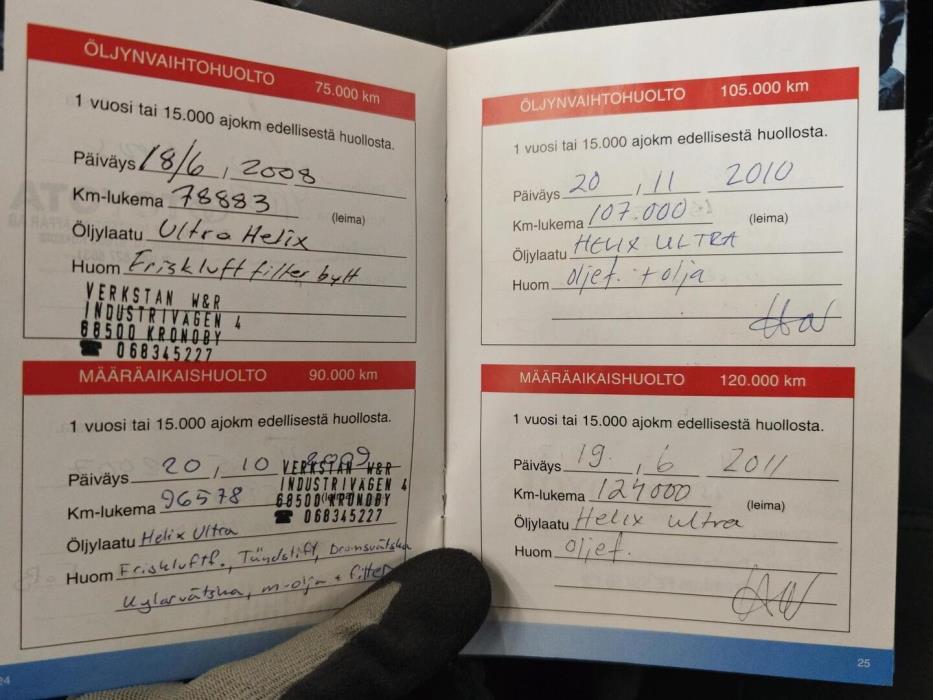 ÖLJYNVAIHTOHUOLTO 75.000 km
1 vuosi tai 15.000 ajokm edellisestä huollosta.
Päiväys 18/6, 2008
Km-lukema 78883 (leima)
Öljylaatu Ultra Helix
Huom Friskluft filter bytt
VERKSTAN W&R
INDUSTRIVÄGEN 4
68500 KRONOBY
☎ 068345227
MÄÄRÄAIKAISHUOLTO 90.000 km
1 vuosi tai 15.000 ajokm edellisestä huollosta.
Päiväys 20, 10 2009
Km-lukema 96578 (leima)
VERKSTAN W&R
INDUSTRIVÄGEN 4
68500 KRONOBY
☎ 068345227
Öljylaatu Helix Ultra
Huom Friskluftf., Tändstift, Bromsvätska
Kylarvätska, m-olja + filter
24
ÖLJYNVAIHTOHUOLTO 105.000 km
1 vuosi tai 15.000 ajokm edellisestä huollosta.
Päiväys 20, 11 2010
Km-lukema 107.000 (leima)
Öljylaatu HELIX ULTRA
Huom oljef. + olja
MÄÄRÄAIKAISHUOLTO 120.000 km
1 vuosi tai 15.000 ajokm edellisestä huollosta.
Päiväys 19, 6 2011
Km-lukema 124000 (leima)
Öljylaatu Helix ultra
Huom oljef.
25